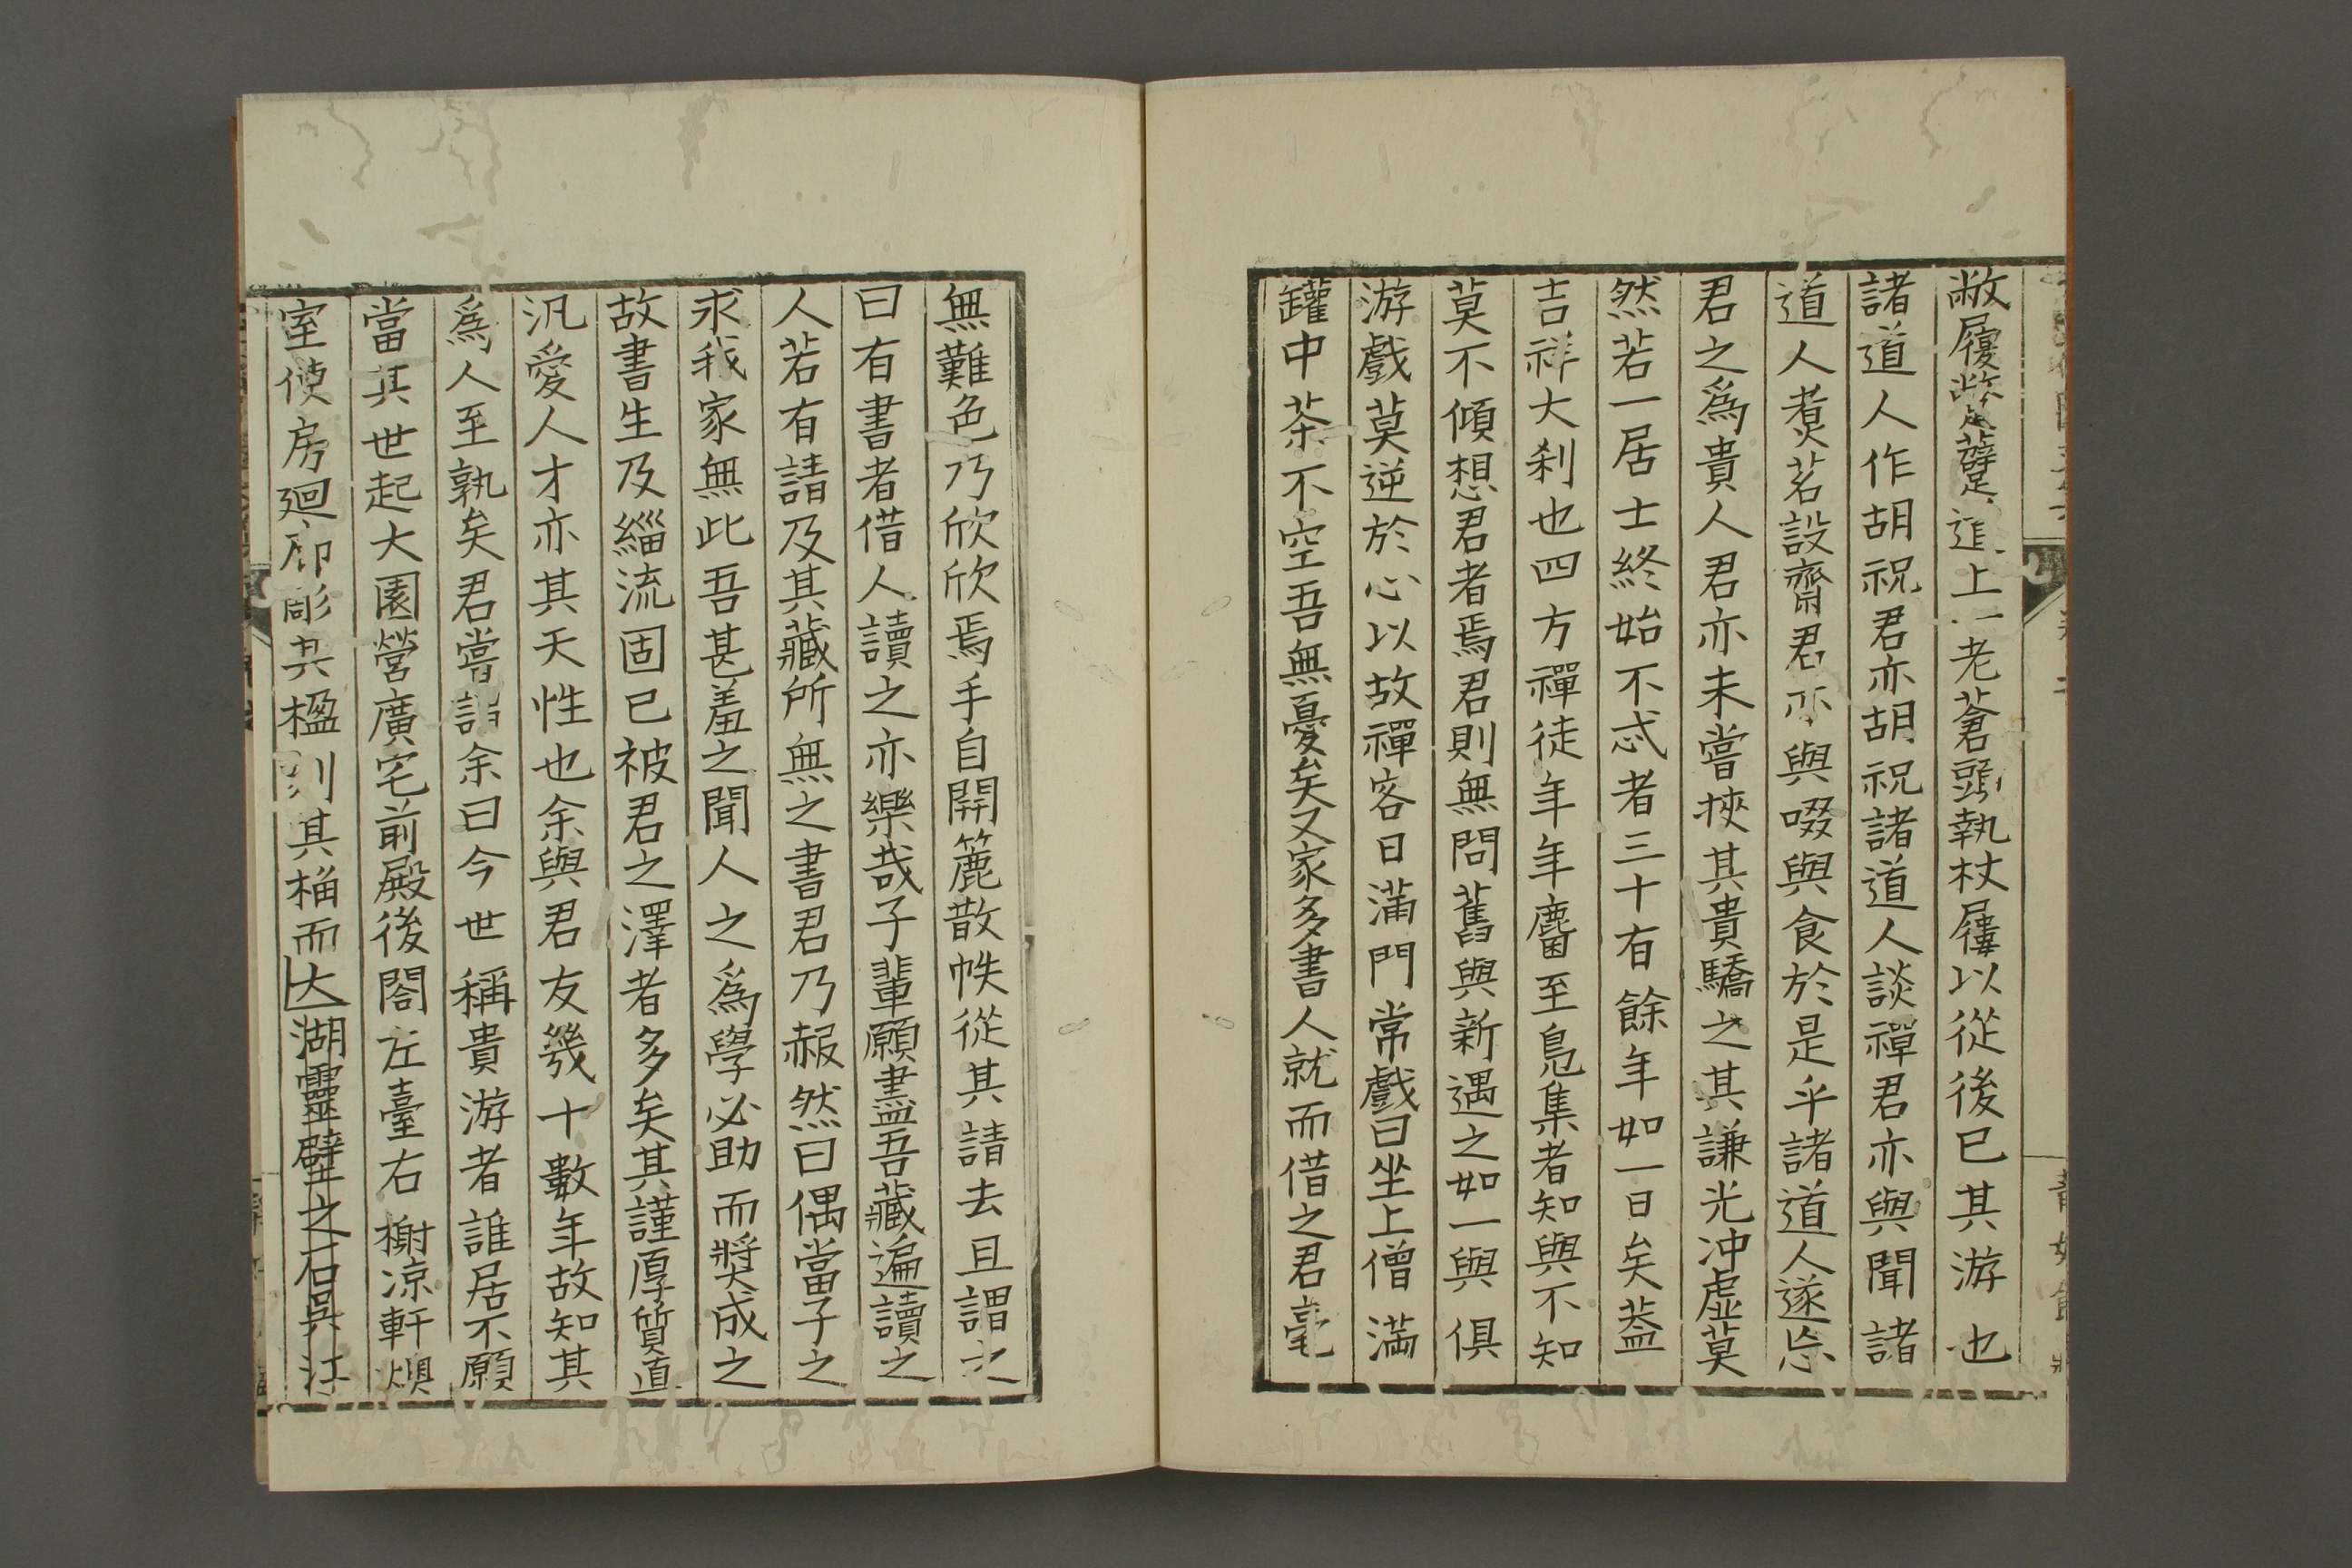 敝履蹩躠進上一老蒼頭執杖屨以從後已其游也
諸道人作胡祝君亦胡祝諸道人談禪君亦與聞諸
道人煮茗設齋君亦與啜與食於是乎諸道人遂忘
君之爲貴人君亦未嘗挾其貴驕之其謙光冲虛莫
然若一居士終始不忒者三十有餘年如一日矣葢
吉祥大剎也四方禪徒年年麕至鳧集者知與不知
莫不傾想君者焉君則無問舊與新遇之如一與俱
游戲莫逆於心以故禪客日滿門常戲曰坐上僧滿
罐中茶不空吾無憂矣又家多書人就而借之君毫
無難色乃欣欣焉手自開簏散帙從其請去且謂之
曰有書者借人讀之亦樂哉子輩願盡吾藏遍讀之
人若有請及其藏所無之書君乃赧然曰偶當子之
求我家無此吾甚羞之聞人之爲學必助而獎成之
故書生及緇流固已被君之澤者多矣其謹厚質直
汎愛人才亦其天性也余與君友幾十數年故知其
爲人至孰矣君嘗謂余曰今世稱貴游者誰居不願
當其世起大園營廣宅前殿後閣左臺右榭凉軒燠
室使房廻廊彫其楹刻其桷而大湖靈壁之石吳江